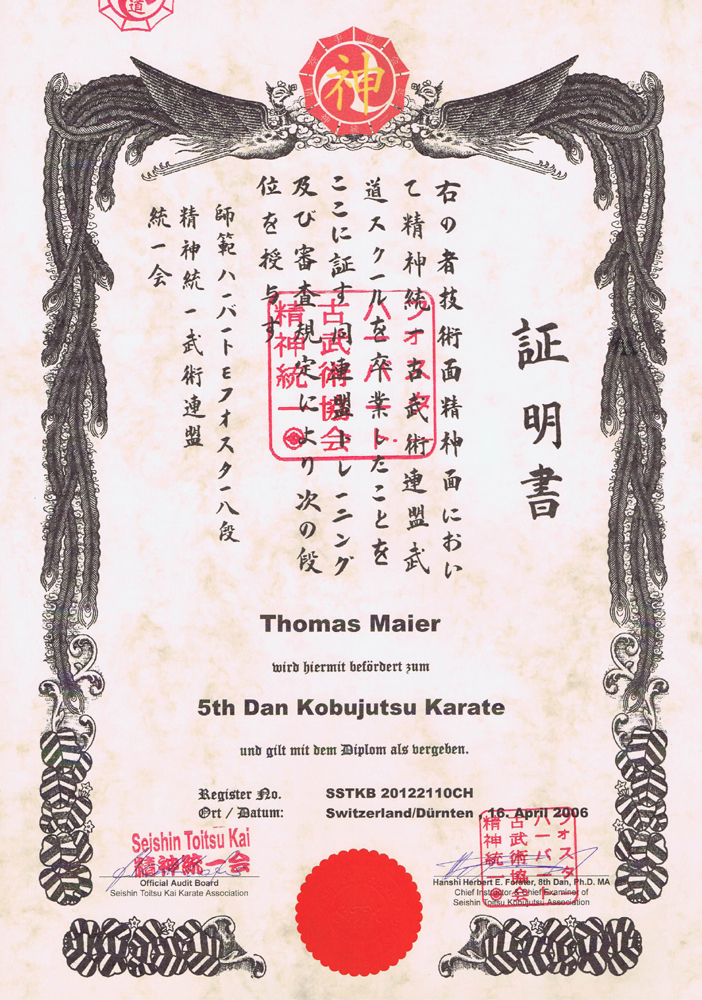 道
神
証明書
右の者技術面精神面におい
て精神統一古武術連盟武
道スクールを卒業したことを
ここに証す同連盟トレーニング
及び審査規定により次の段
位を授与す
師範ハーバートEフオスター八段
精神統一武術連盟
統一会
フォスター
ハーバート
古武術協会
精神統一
Thomas Maier
wird hiermit befördert zum
5th Dan Kobujutsu Karate
und gilt mit dem Diplom als vergeben.
Register No. SSTKB 20122110CH
Ort / Datum: Switzerland/Dürnten , 16. April 2006
Seishin Toitsu Kai
精神統一会
Official Audit Board
Seishin Toitsu Kai Karate Association
フォスター
ハーバート
古武術協会
精神統一
Hanshi Herbert E. Forster, 8th Dan, Ph.D. MA
Chief Instructor & Chief Examiner of
Seishin Toitsu Kobujutsu Association